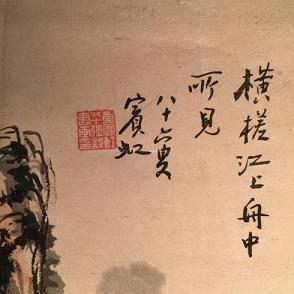 橫槎江上舟中
所見
八十六叟
賓虹